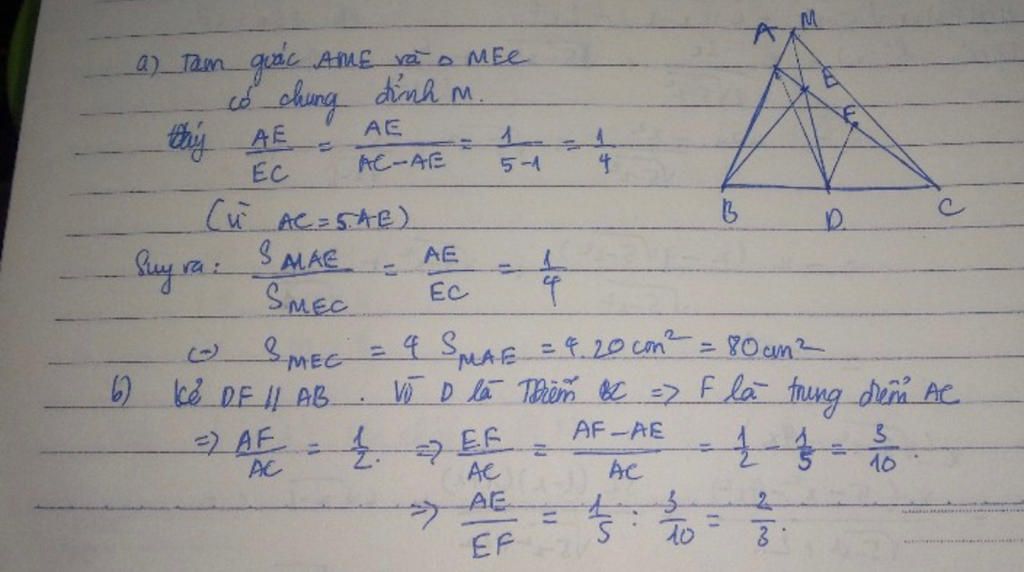 a) Tam giác AME và △ MEC
có chung đỉnh M.
thấy AE/EC = AE/(AC-AE) = 1/(5-1) = 1/4
(Vì AC = 5.AE)
Suy ra: S_MAE/S_MEC = AE/EC = 1/4
(=) S_MEC = 4 S_MAE = 4.20cm² = 80cm²
b) Kẻ DF // AB. Vì D là TĐiểm BC => F là trung điểm AC
=> AF/AC = 1/2. => EF/AC = (AF-AE)/AC = 1/2 - 1/5 = 3/10.
=> AE/EF = 1/5 : 3/10 = 2/3.
A M
E
F
B D C